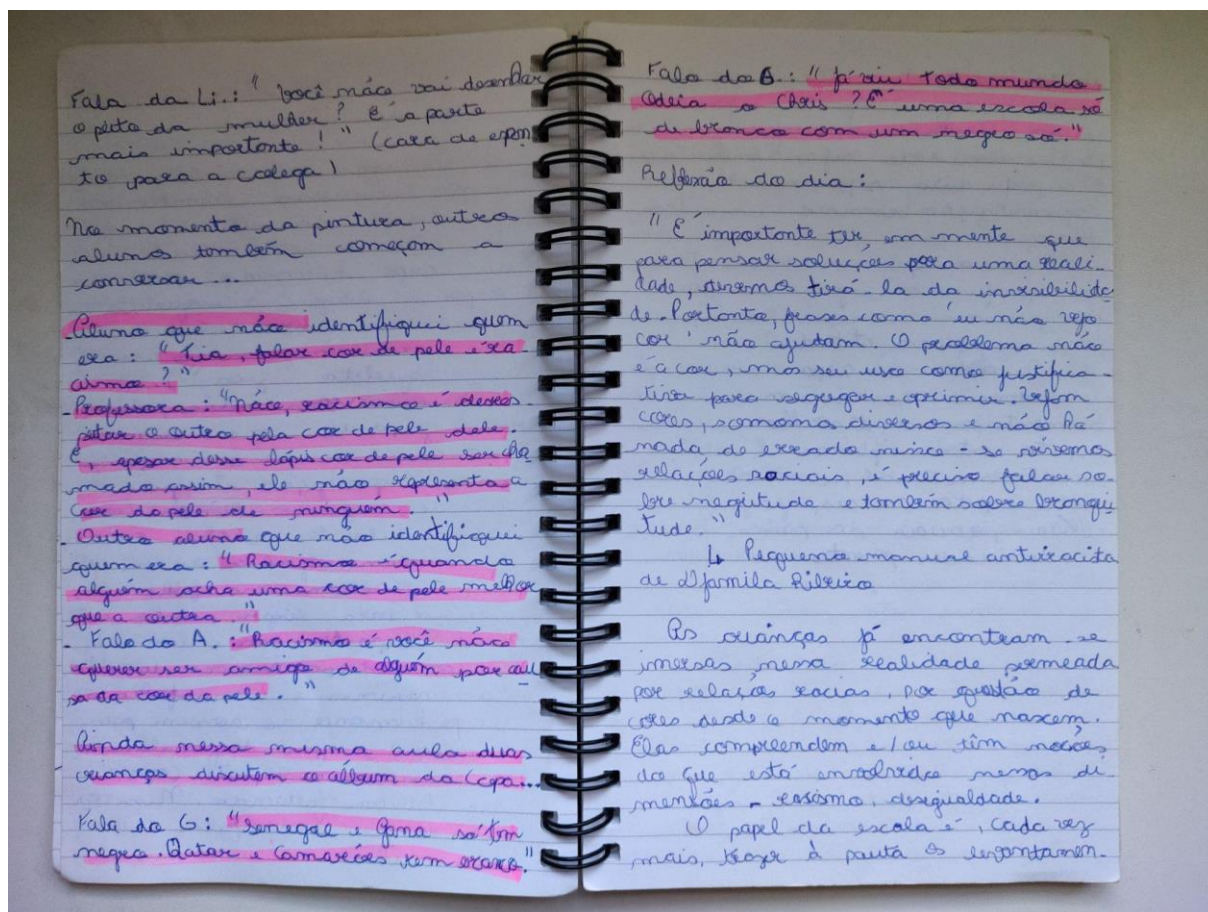 Fala da Li.: "Você não vai desenhar
o peito da mulher? É a parte
mais importante!" (cara de espan
to para a colega)
No momento da pintura, outros
alunos também começam a
conversar...
Aluno que não identifiquei quem
era: "Tia, falar cor de pele é ra-
cismo?"
- Professora: "Não, racismo é desres-
peitar o outro pela cor de pele dele.
E, apesar desse lápis cor de pele ser cha
mado assim, ele não representa a
cor da pele de ninguém."
- Outro aluno que não identifiquei
quem era: "Racismo é quando
alguém acha uma cor de pele melhor
que a outra."
- Fala do A.: "Racismo é você não
querer ser amigo de alguém por cau
sa da cor da pele."
Ainda nessa mesma aula duas
crianças discutem o álbum da Copa...
Fala do G: "Senegal e Gana só tem
negro. Qatar e Camarões tem branco."
Fala do G.: "já viu todo mundo
Odeia o Chris? É uma escola só
de branco com um negro só."
Reflexão do dia:
"É importante ter em mente que
para pensar soluções para uma reali-
dade, devemos tirá-la da invisibilida
de. Portanto, frases como 'eu não vejo
cor' não ajudam. O problema não
é a cor, mas seu uso como justifica-
tiva para segregar e oprimir. Vejam
cores, somos diversos e não há
nada de errado nisso - se vivemos
relações raciais, é preciso falar so-
bre negritude e também sobre branqui
tude."
↳ Pequeno manual antirracista
de Djamila Ribeiro
As crianças já encontram-se
imersas nessa realidade permeada
por relações raciais, por questão de
cores desde o momento que nascem.
Elas compreendem e/ou têm noções
do que está envolvido nessas di
mensões - racismo, desigualdade.
O papel da escola é, cada vez
mais, trazer à pauta os levantamen-